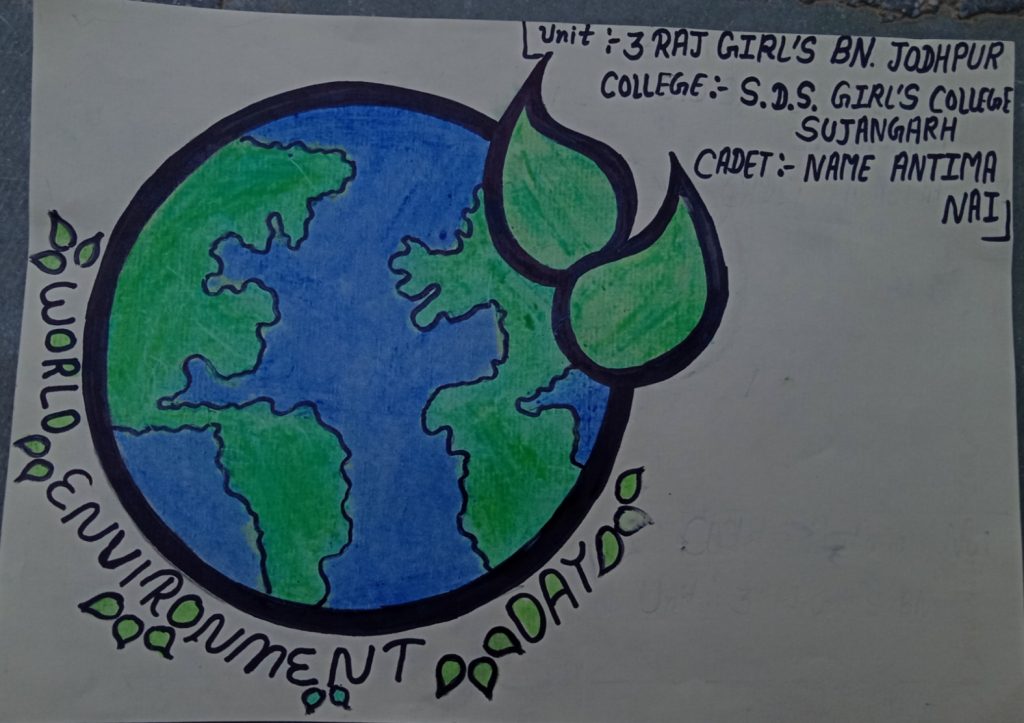 [Unit :- 3 RAJ GIRL'S BN. JODHPUR
COLLEGE :- S.D.S. GIRL'S COLLEGE
SUJANGARH
CADET :- NAME ANTIMA
NAI]
WORLD ENVIRONMENT DAY